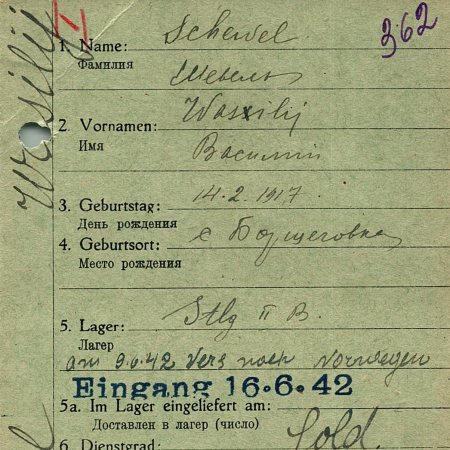 362
1. Name: Schewel
Фамилия Шевель
Wassilij
2. Vornamen: Wassilij
Имя Василий
3. Geburtstag: 14.2.1917
День рождения
4. Geburtsort: с Борщеговка
Место рождения
5. Lager: Stlg II B.
Лагер
am 9.6.42 Vers nach Norwegen
Eingang 16.6.42
5a. Im Lager eingeliefert am:
Доставлен в лагер (число)
6. Dienstgrad: Sold.